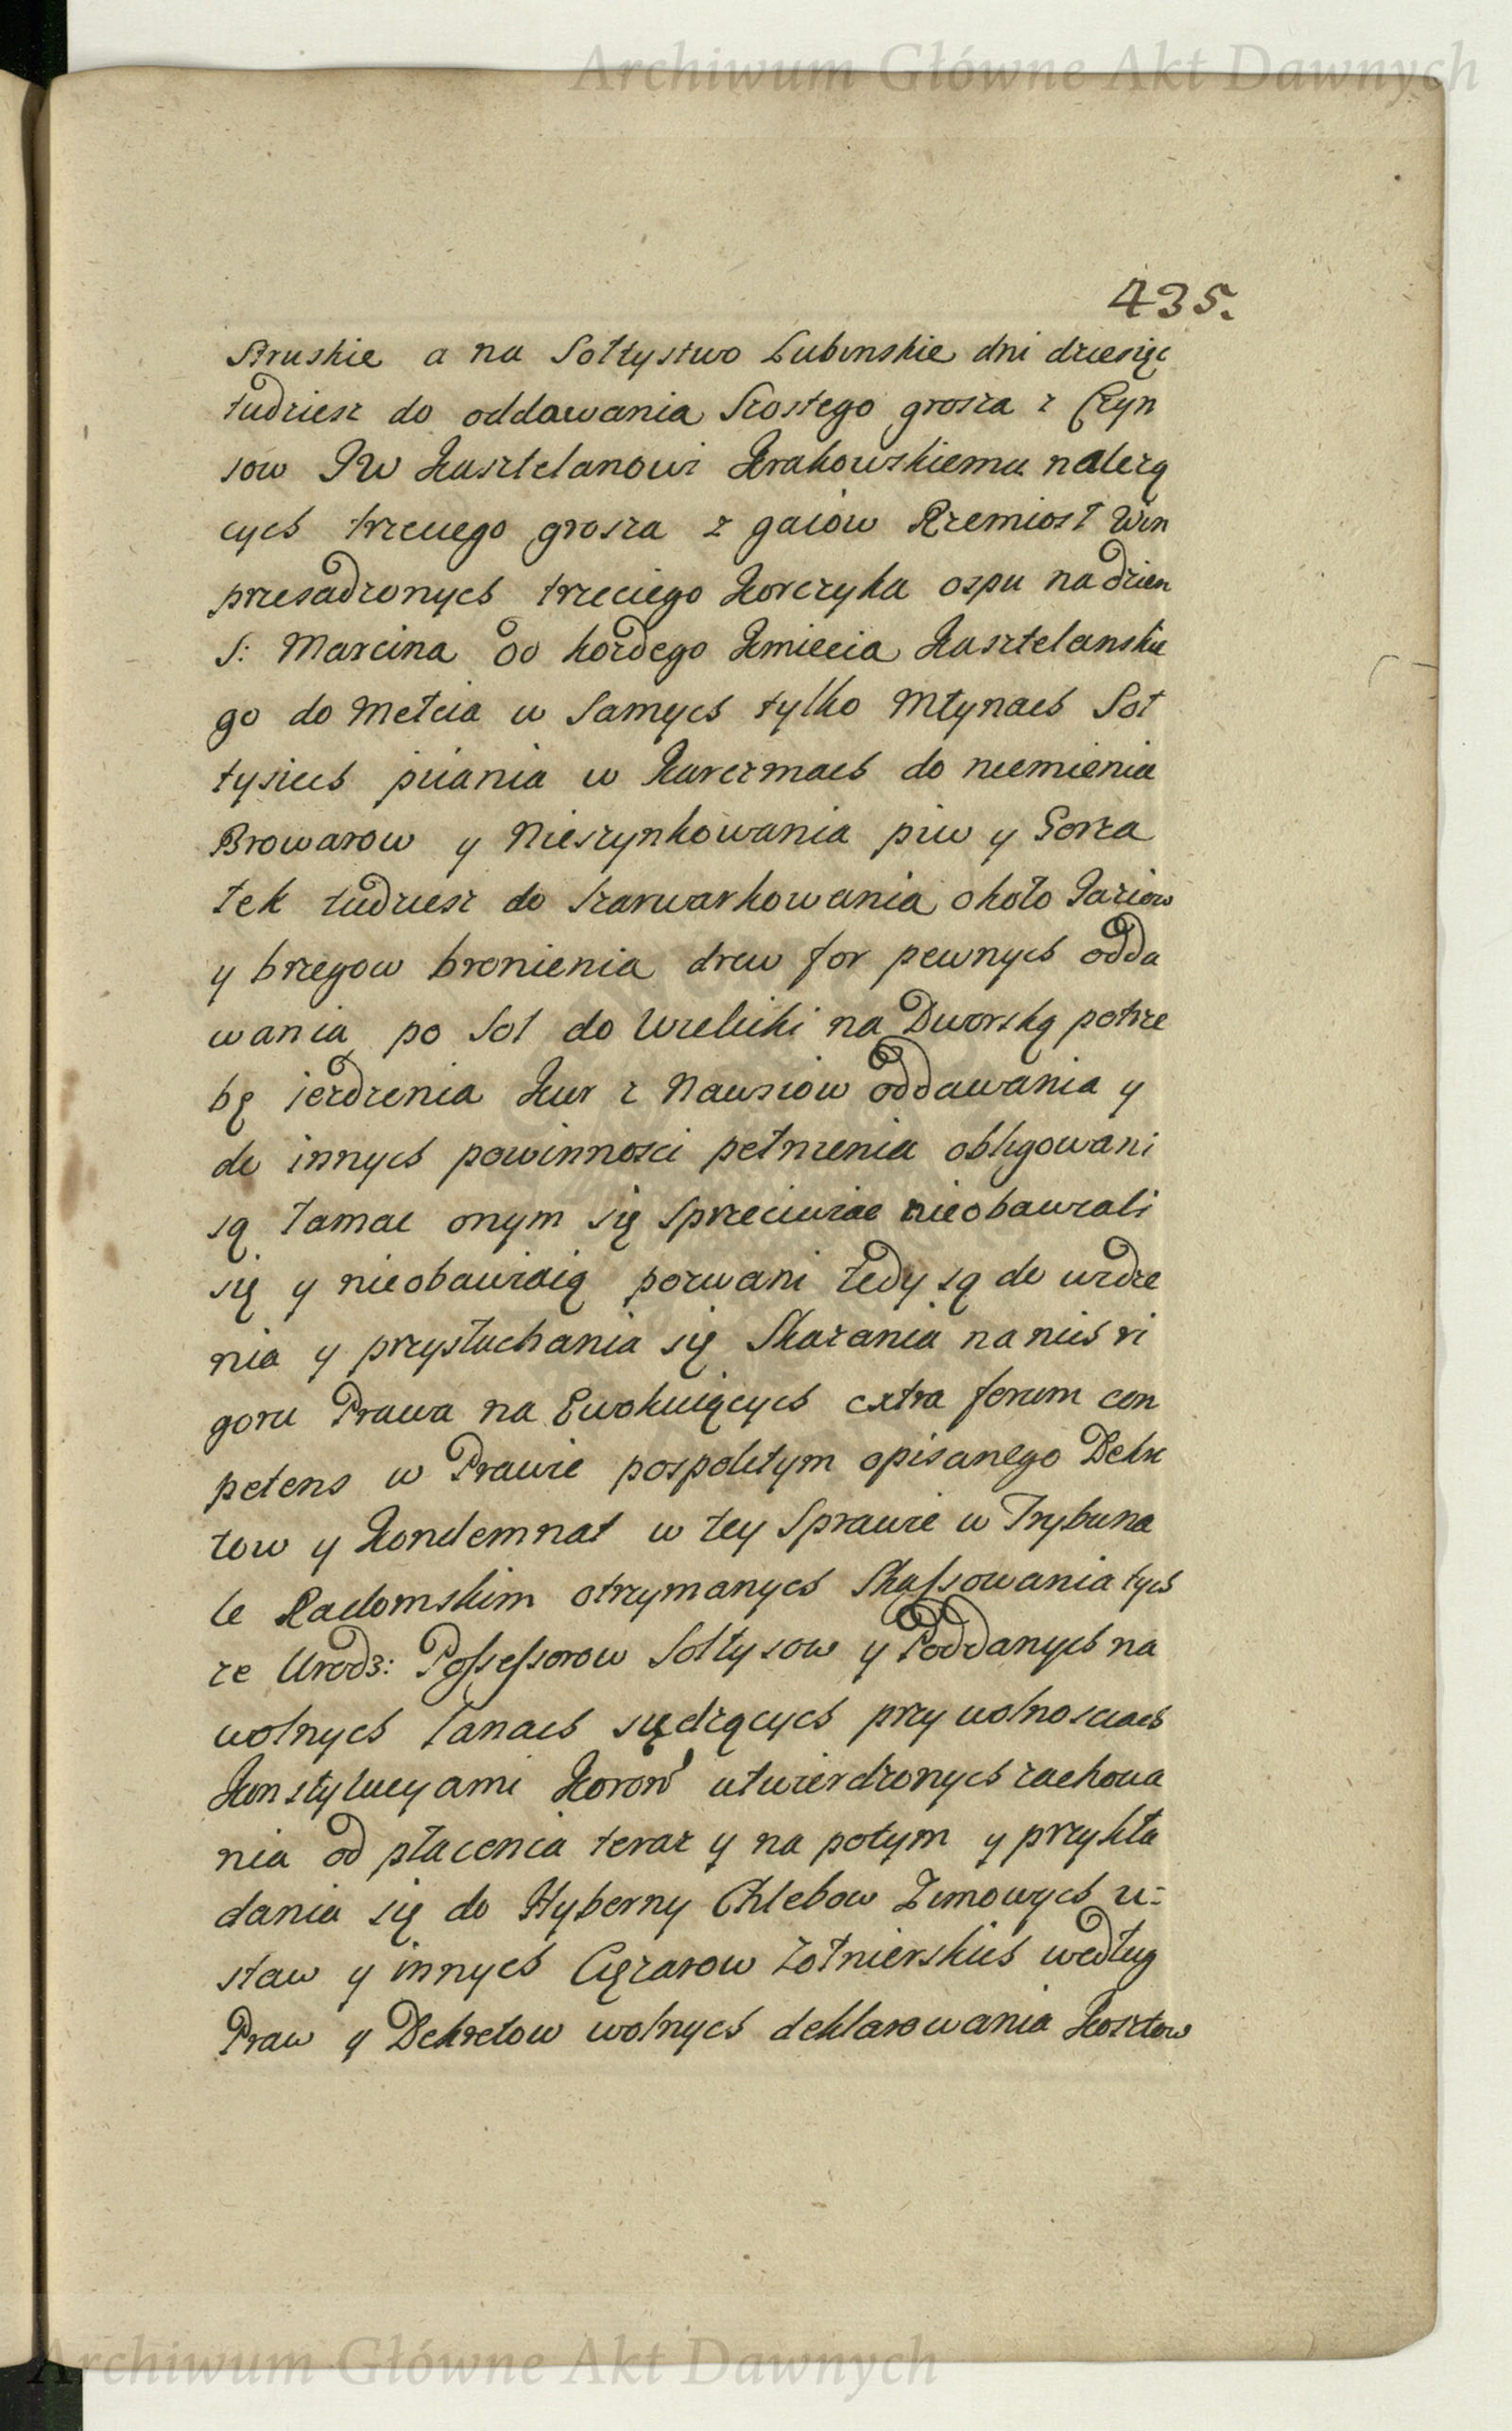 Archiwum Główne Akt Dawnych
435.
Struskie a na Sołtystwo Lubinskie dni dziesięc
tudziesz do oddawania Szostego grosza z Czyn
sow JW Kasztelanowi Krakowskiemu należą
cych trzeciego grosza z gaiow Rzemiosł Win
przesadzonych trzeciego Korczyka ospu na dzien
S: Marcina od kożdego Kmiecia Kasztelanskie
go do Mełcia w Samych tylko Młynach Soł
tysich piiania w Karczmach do niemienia
Browarow y Nieszynkowania piw y Gorza
łek tudziesz do szarwarkowania około Jaziow
y brzegow bronienia drew for pewnych odda
wania po Sol do Wieliczki na Dworską potrze
bę ieżdzenia Kur z Nawsiow oddawania y
do innych powinnosci pełnienia obligowani
są łamac onym się sprzeciwiac nieobawiali
się y nieobawiaią pozwani tedy są do widze
nia y przysłuchania się Skazania na nich ri
goru Prawa na Ewokuiących extra forum com
petens w Prawie pospolitym opisanego Dekre
tow y Kondemnat w tey Sprawie w Trybuna
le Radomskim otrzymanych Skassowania tych
ze Urodz: Possessorow Sołtysow y Poddanych na
wolnych łanach siędzących przy wolnosciach
Konstytucyami Koron utwierdzonych zachowa
nia od płacenia teraz y na potym y przykła
dania się do Hyberny Chlebow Zimowych u:
staw y innych Cięzarow żołnierskich według
Praw y Dekretow wolnych deklarowania Kosztow
Archiwum Główne Akt Dawnych